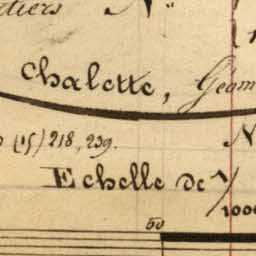 N.
Chalette, Géom
(15) 218, 239.
N
Echelle de 1/
1000
50